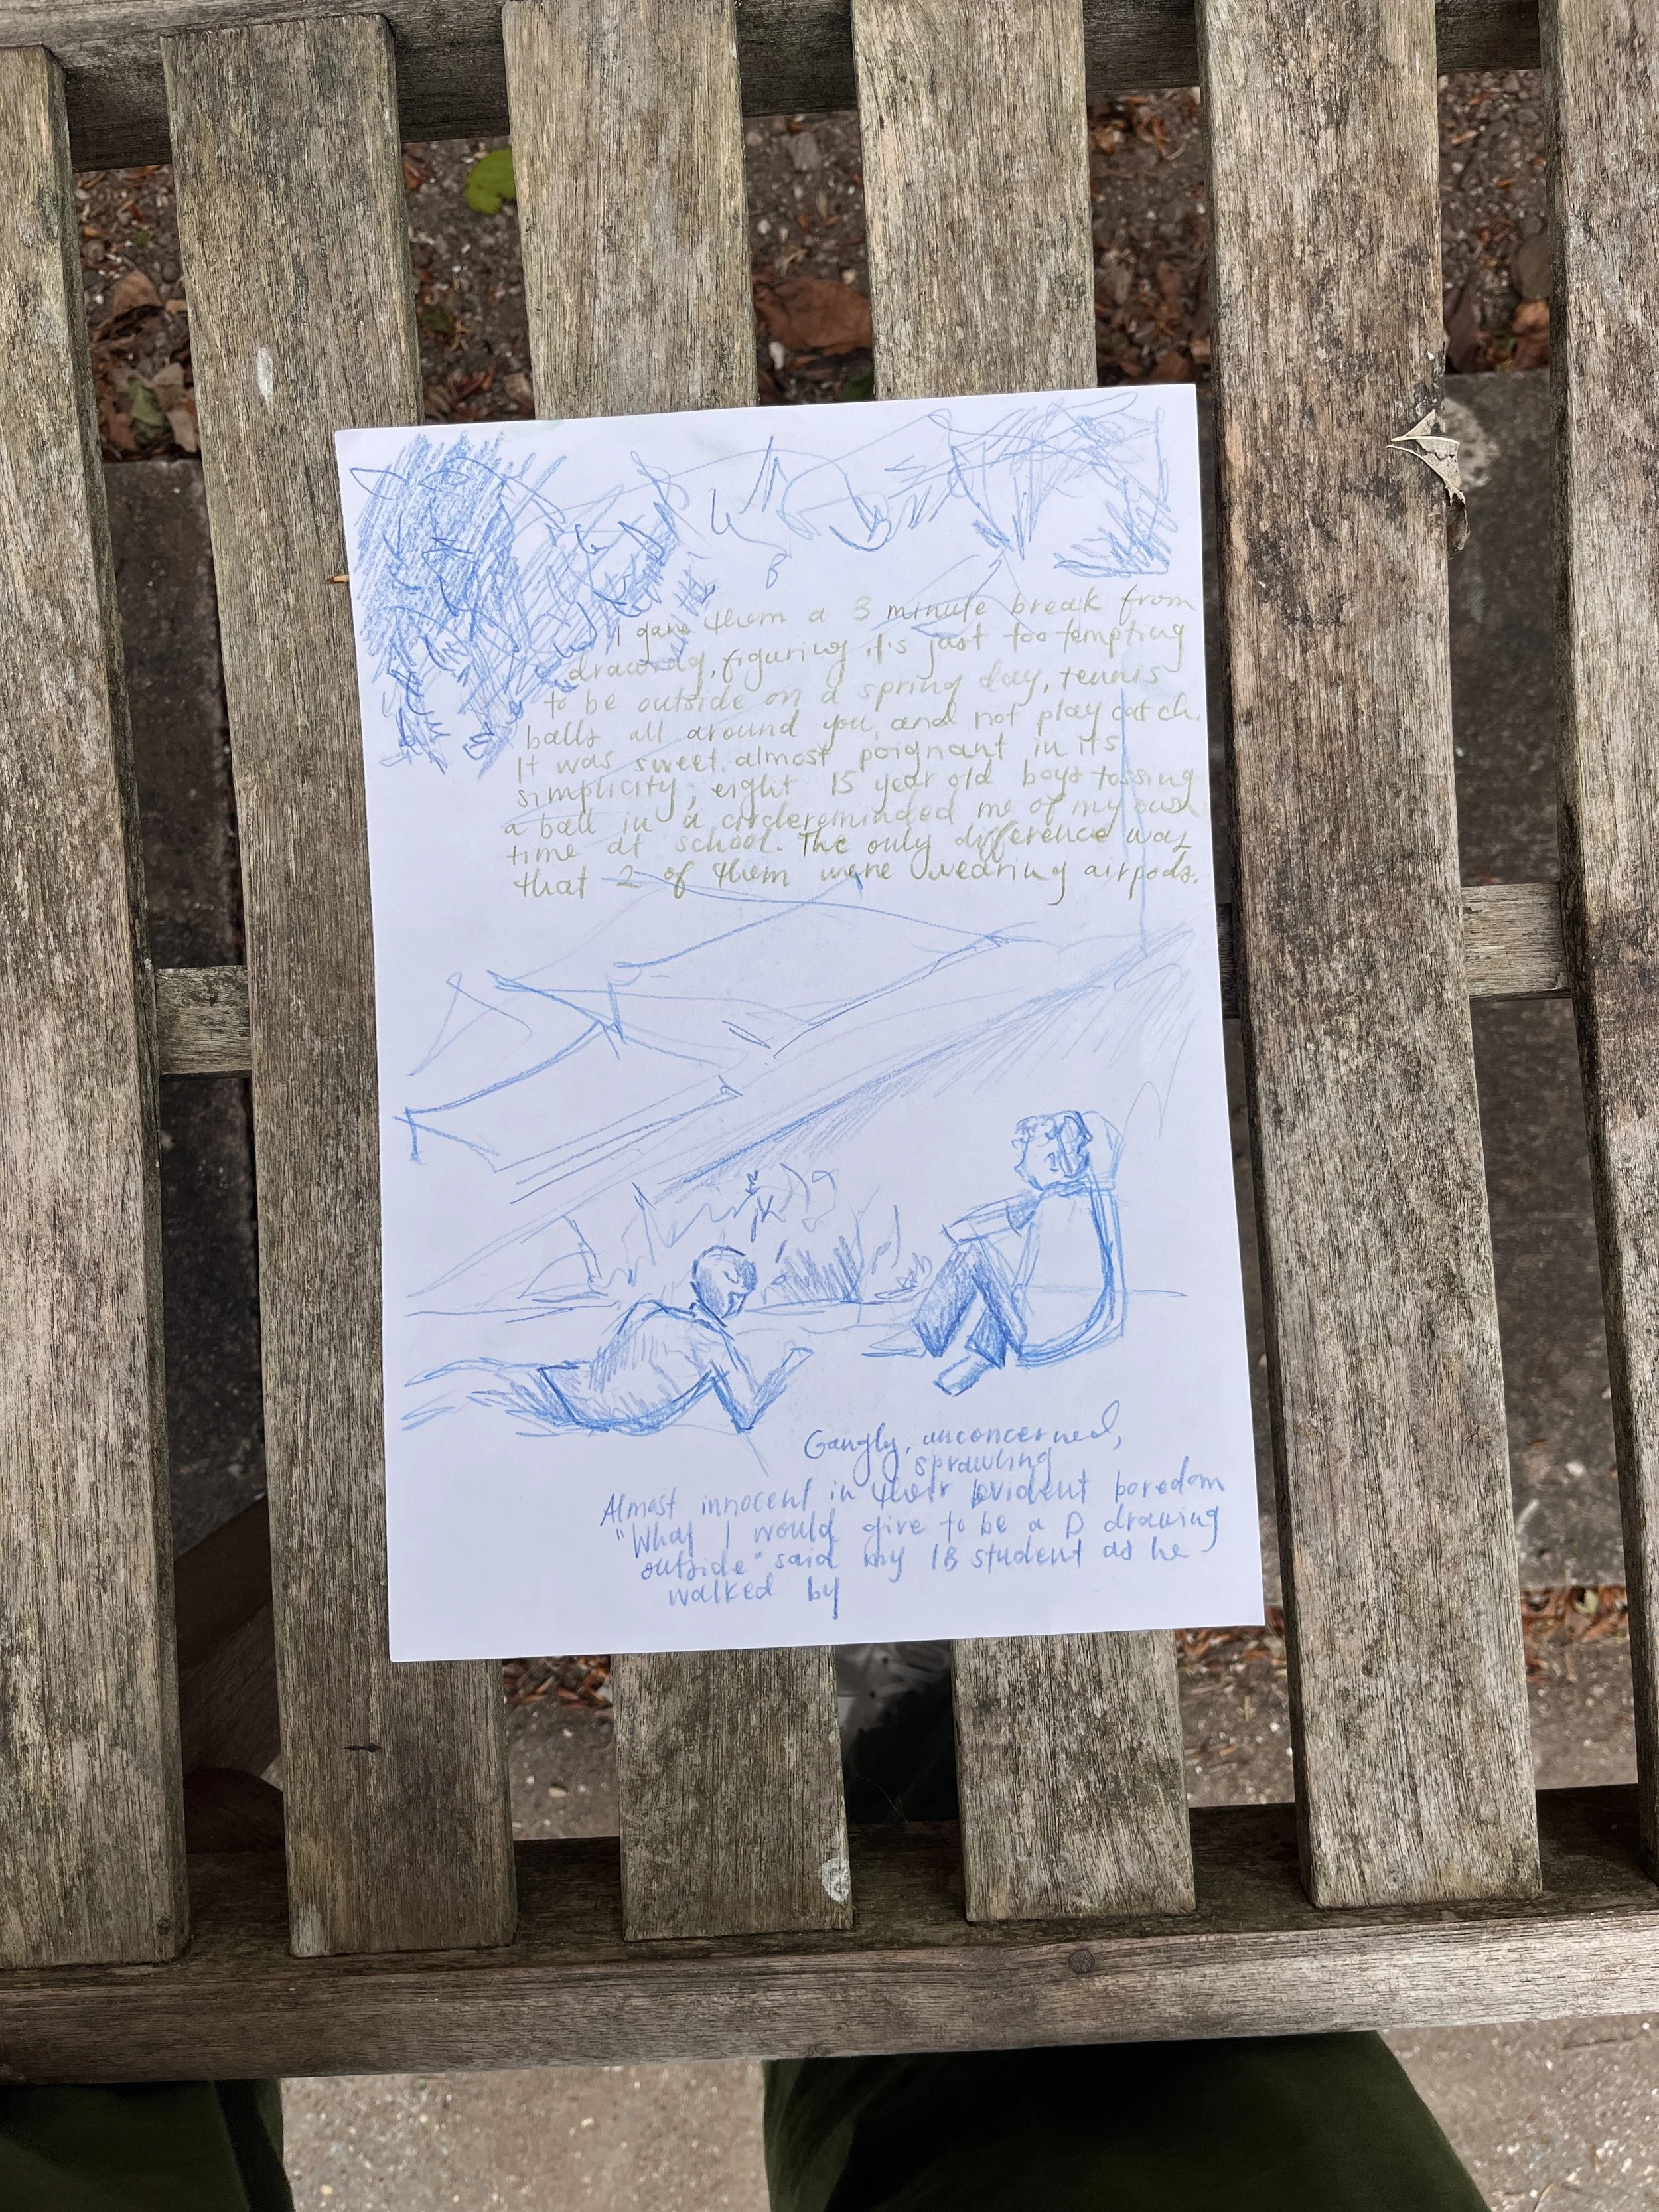 I gave them a 3 minute break from
drawing, figuring it's just too tempting
to be outside on a spring day, tennis
balls all around you, and not play catch.
It was sweet, almost poignant in its
simplicity; eight 15 year old boys tossing
a ball in a circle reminded me of my own
time at school. The only difference was
that 2 of them were wearing airpods.
Gangly, unconcerned,
sprawling
Almost innocent in their evident boredom
"What I would give to be a D drawing
outside" said my IB student as he
walked by